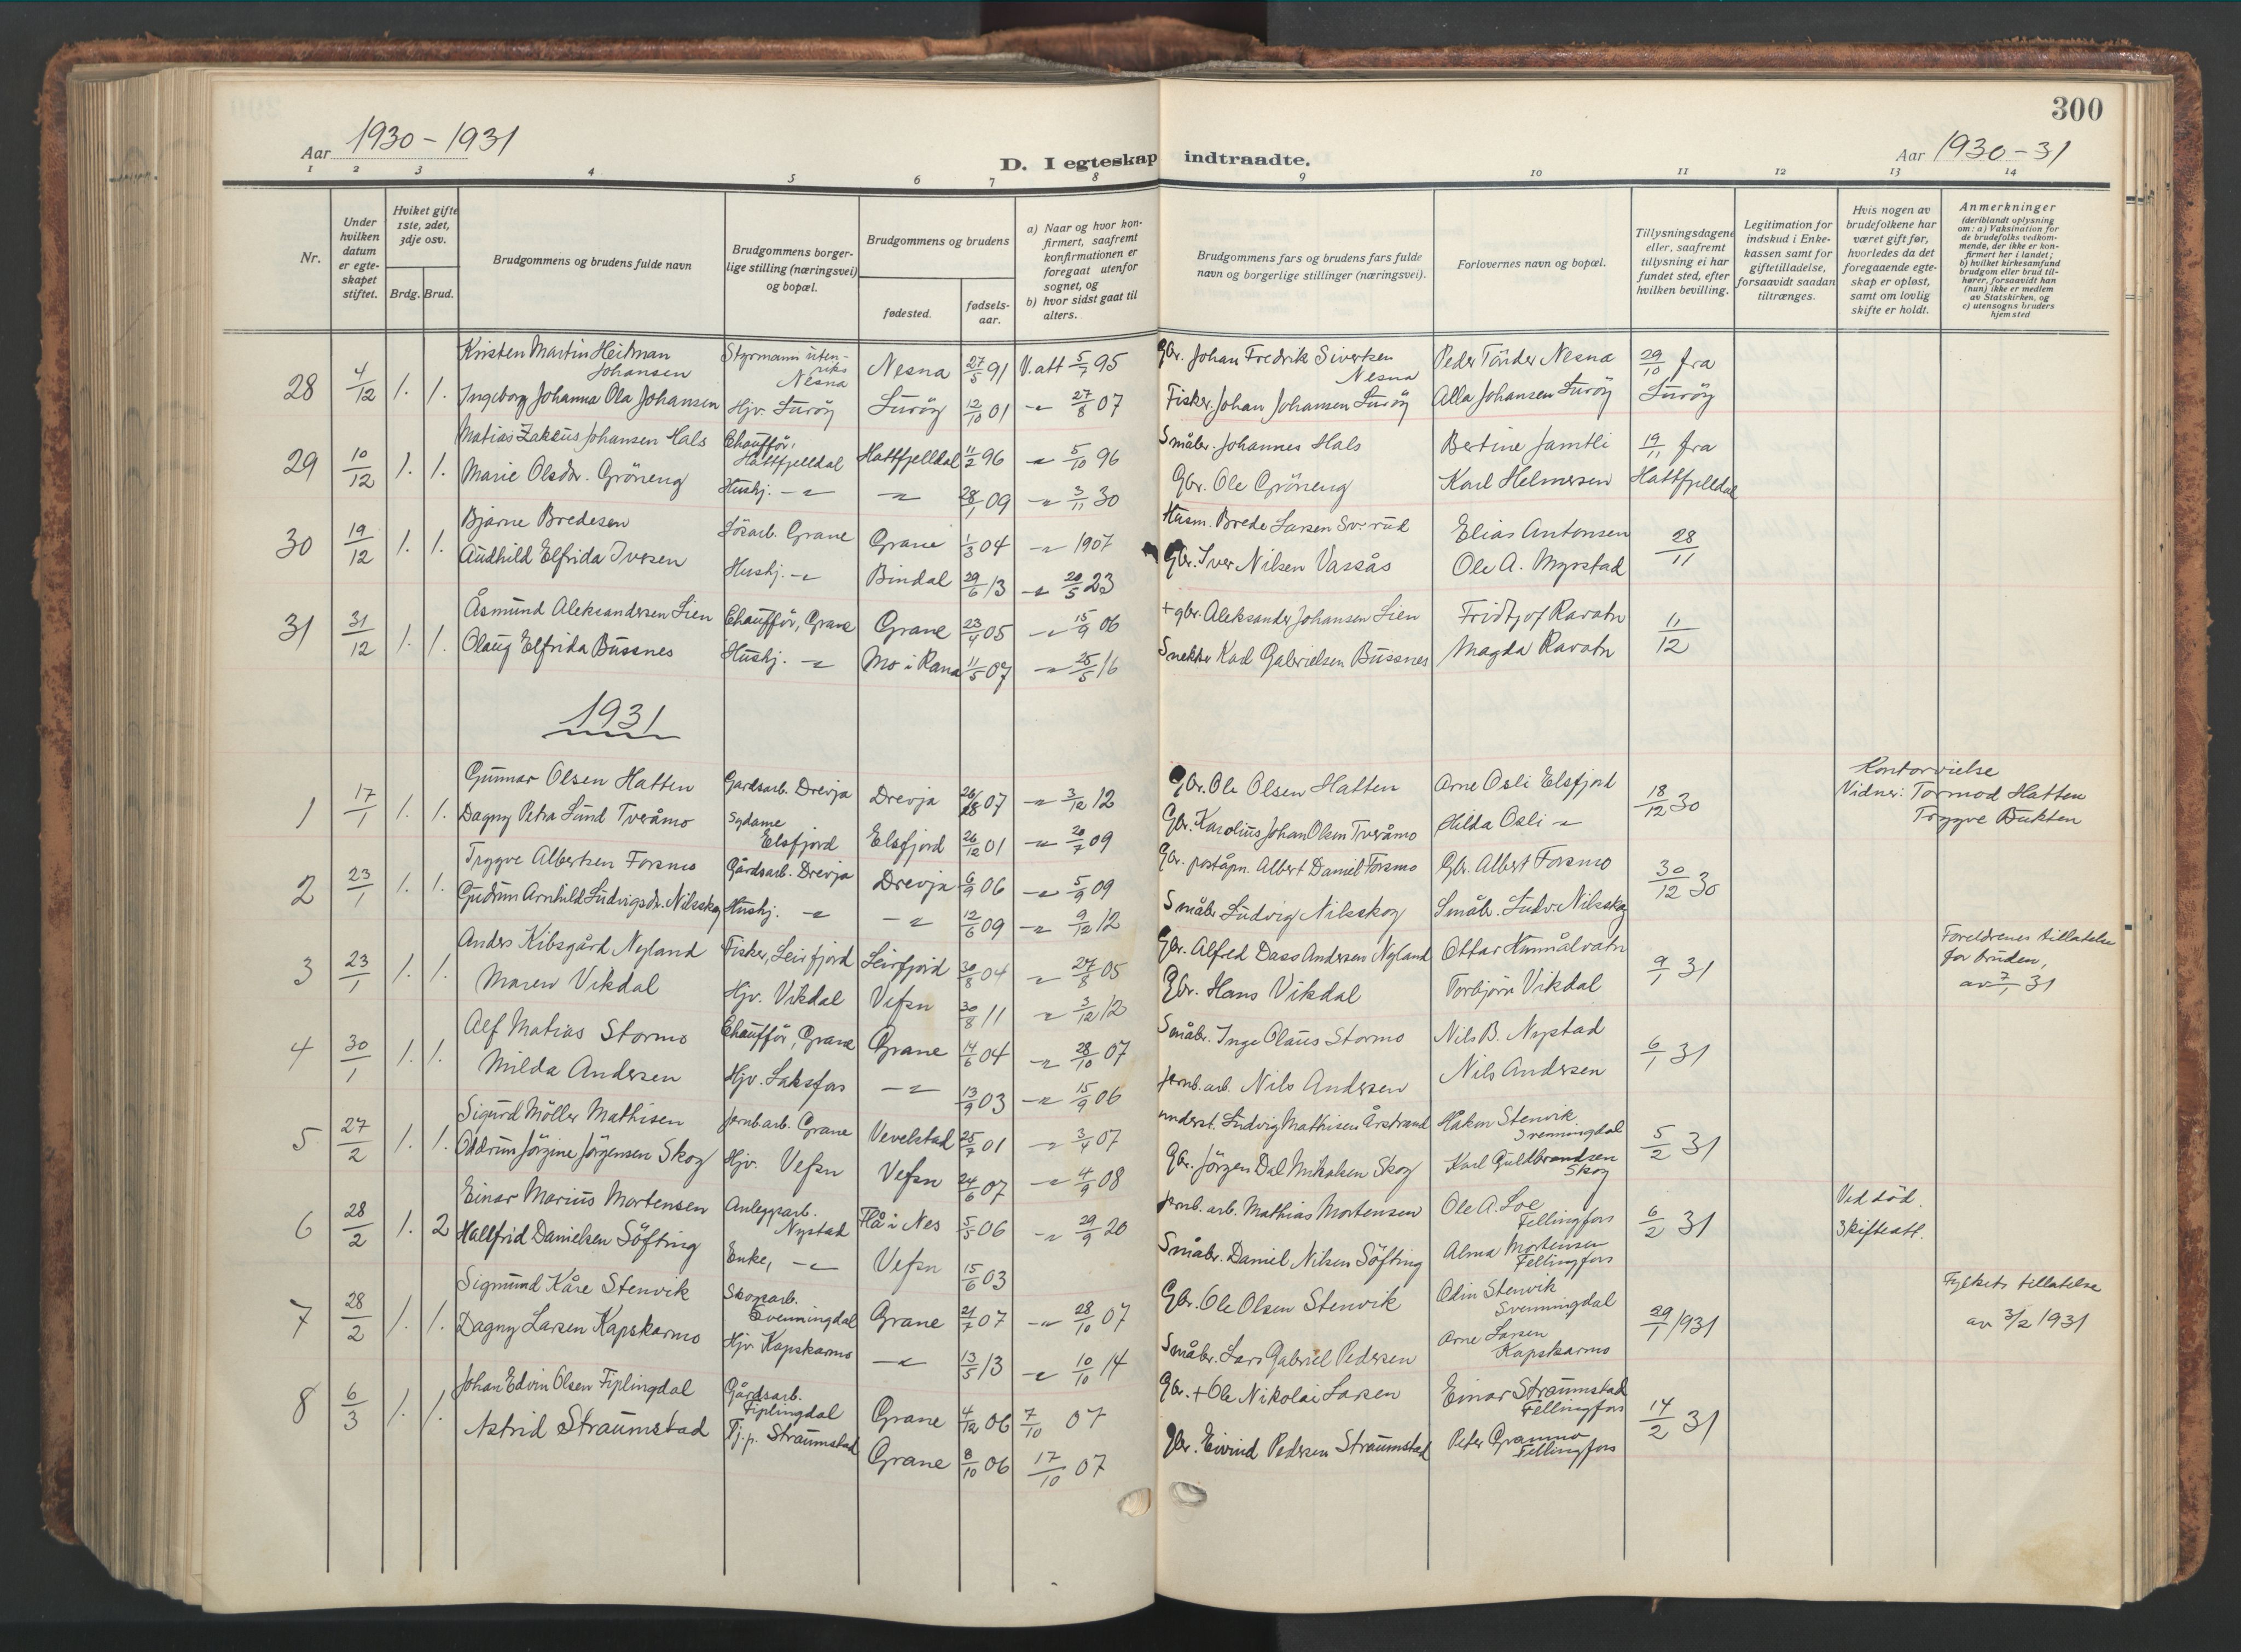 300
Aar 1930-1931
Aar 1930-31
D. I egteskap indtraadte.
1 2 3 4 5 6 7 8 9 10 11 12 13 14
Nr.
Under hvilken datum er egteskapet stiftet.
Hviket gifte 1ste, 2det, 3dje osv.
Brdg. Brud.
Brudgommens og brudens fulde navn
Brudgommens borgerlige stilling (næringsvei) og bopæl.
Brudgommens og brudens
fødested.
fødselsaar.
a) Naar og hvor konfirmert, saafremt konfirmationen er foregaat utenfor sognet, og
b) hvor sidst gaat til alters.
Brudgommens fars og brudens fars fulde navn og borgerlige stillinger (næringsvei).
Forlovernes navn og bopæl.
Tillysningsdagene eller, saafremt tillysning ei har fundet sted, efter hvilken bevilling.
Legitimation for indskud i Enkekassen samt for giftetilladelse, forsaavidt saadan tiltrænges.
Hvis nogen av brudefolkene har været gift før, hvorledes da det foregaaende egteskap er opløst, samt om lovlig skifte er holdt.
Anmerkninger
(deriblandt oplysning om: a) Vaksination for de brudefolks vedkommende, der ikke er konfirmert her i landet; b) hvilket kirkesamfund brudgom eller brud tilhører, forsaavidt han (hun) ikke er medlem av Statskirken, og c) utensogns bruders hjemsted
28 4/12 1. 1. Kristen Martin Heitman Johansen Styrmann uten-riks Nesna Nesna 27/5 91 V.att 5/7 95 Gbr. Johan Fredrik Sivertsen Nesna Peder Tönder Nesna 29/10 fra
Ingeborg Johanna Ola Johansen Hjv. Luröy Luröy 12/10 01 -"- 27/8 07 Fisker. Johan Johansen Luröy Alla Johansen Luröy Luröy
29 10/12 1. 1. Matias Zakæus Johansen Hals Chaufför, Hattfjelldal Hattfjelldal 11/2 96 -"- 5/10 96 Småbr. Johannes Hals Bertine Jamtli 19/11 fra
Marie Olsdr. Gröneng Hushj. -"- -"- 28/1 09 -"- 3/11 30 Gbr. Ole Gröneng Karl Helmersen Hattfjelldal
30 19/12 1. 1. Bjarne Bredesen Lösarb. Grane Grane 1/3 04 -"- 1907 Husm. Brede Larsen Elias Antonsen 28/11
Audhild Elfrida Iversen Hushj. -"- Bindal 29/6 13 -"- 20/5 23 Gbr. Iver Nilsen Vassås Ole A. Myrstad
31 31/12 1. 1. Åsmund Aleksandersen Lien Chaufför, Grane Grane 23/4 05 -"- 15/9 06 + gbr. Aleksander Johansen Lien Fridtjof Ravatn 11/12
Olaug Elfrida Bussnes Hushj. -"- Mo i Rana 11/5 07 -"- 25/5 16 Snekker Karl Gabrielsen Bussnes Magda Ravatn
1931
1 17/1 1. 1. Gunnar Olsen Hatten Gardsarb. Drevja Drevja 07 -"- 3/12 12 Gbr. Ole Olsen Hatten Arne Osli Elsfjord 18/12 30 Kontorvielse
Vidner: Tormod Hatten
Trygve Bukten
Dagny Petra Lund Tveråmo Sydame Elsfjord Elsfjord 26/12 01 -"- 20/7 09 Gbr. Karolius Johan Olsen Tveråmo Hilda Osli -"-
2 23/1 1. 1. Trygve Albertsen Forsmo Gårdsarb. Drevja Drevja 6/9 06 -"- 5/9 09 Gbr. poståpn. Albert Daniel Forsmo Gbr. Albert Forsmo 30/12 30
Gudrun Arnhild Ludvigsdr. Nilsskog Hushj. -"- -"- 12/6 09 -"- 9/12 12 Småbr. Ludvig Nilsskog Småbr. Ludv. Nilsskog
3 23/1 1. 1. Anders Kibsgård Nyland Fisker, Leirfjord Leirfjord 30/8 04 -"- 27/8 05 Gbr. Alfred Dass Andersen Nyland Ottar Hunnålvatn 9/1 31 Foreldrenes tillatelse
for bruden,
av 7/1 31
Maren Vikdal Hjv. Vikdal Vefsn 30/8 11 -"- 3/12 12 Gbr. Hans Vikdal Torbjörn Vikdal
4 30/1 1. 1. Alf Matias Stormo Chaufför, Grane Grane 14/6 04 -"- 28/10 07 Småbr. Inge Olaus Stormo Nils B. Nystad 6/1 31
Milda Andersen Hjv. Laksfors -"- 13/9 03 -"- 15/9 06 Jernb.arb. Nils Andersen Nils Andersen
5 27/2 1. 1. Sigurd Möller Mathisen Jernb.arb. Grane Vevelstad 25/7 01 -"- 3/4 07 underst. Ludvig Mathisen Årstrand Håkon Stenvik Svenningdal 5/2 31
Oddrun Jörgine Jörgensen Skog Hjv. Vefsn Vefsn 24/6 07 -"- 4/9 08 Gbr. Jörgen Dal Mikalsen Skog Karl Guldbrandsen Skog
6 28/2 1. 2 Einar Marius Mortensen Anleggsarb. Nystad Flå i Nes 5/5 06 -"- 29/9 20 Jernb. arb. Mathias Mortensen Ole A. Loe Fellingfors 6/2 31 Ved död.
Skifteatt.
Hallfrid Danielsen Söfting Enke, -"- Vefsn 15/6 03 Småbr. Daniel Nilsen Söfting Alma Mortensen Fellingfors
7 28/2 1. 1. Sigmund Kåre Stenvik Skogsarb. Svenningdal Grane 21/7 07 -"- 28/10 07 Gbr. Ole Olsen Stenvik Odin Stenvik Svenningdal 29/1 1931 Fylkets tillatelse
av 3/2 1931
Dagny Larsen Kapskarmo Hjv. Kapskarmo -"- 13/5 13 -"- 10/10 14 Småbr. Lars Gabriel Pedersen Arne Larsen Kapskarmo
8 6/3 1. 1. Johan Edvin Olsen Fiplingdal Gårdsarb. Fiplingdal Grane 4/12 06 7/10 07 Gbr. + Ole Nikolai Larsen Einar Straumstad Fellingfors 14/2 31
Astrid Straumstad Tj.p. Straumstad Grane 8/10 06 17/10 07 Gbr. Eivind Pedersen Straumstad Peter Granmo Fellingfors